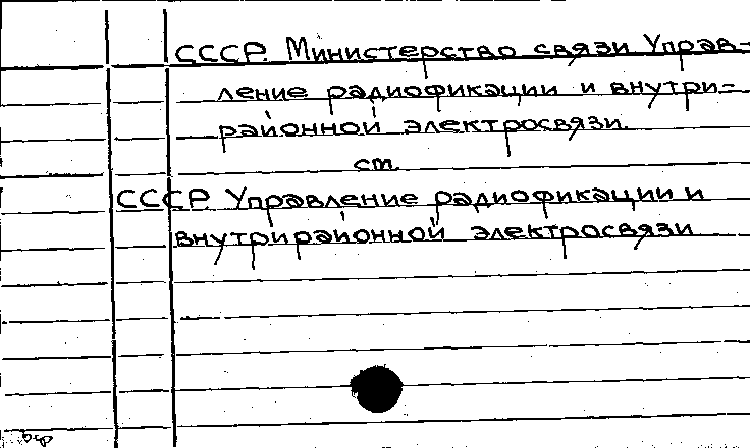 СССР. Министерство связи Управ-
ление радиофикации и внутри-
районной электросвязи.
см.
СССР. Управление радиофикации и
внутрирайонной электросвязи